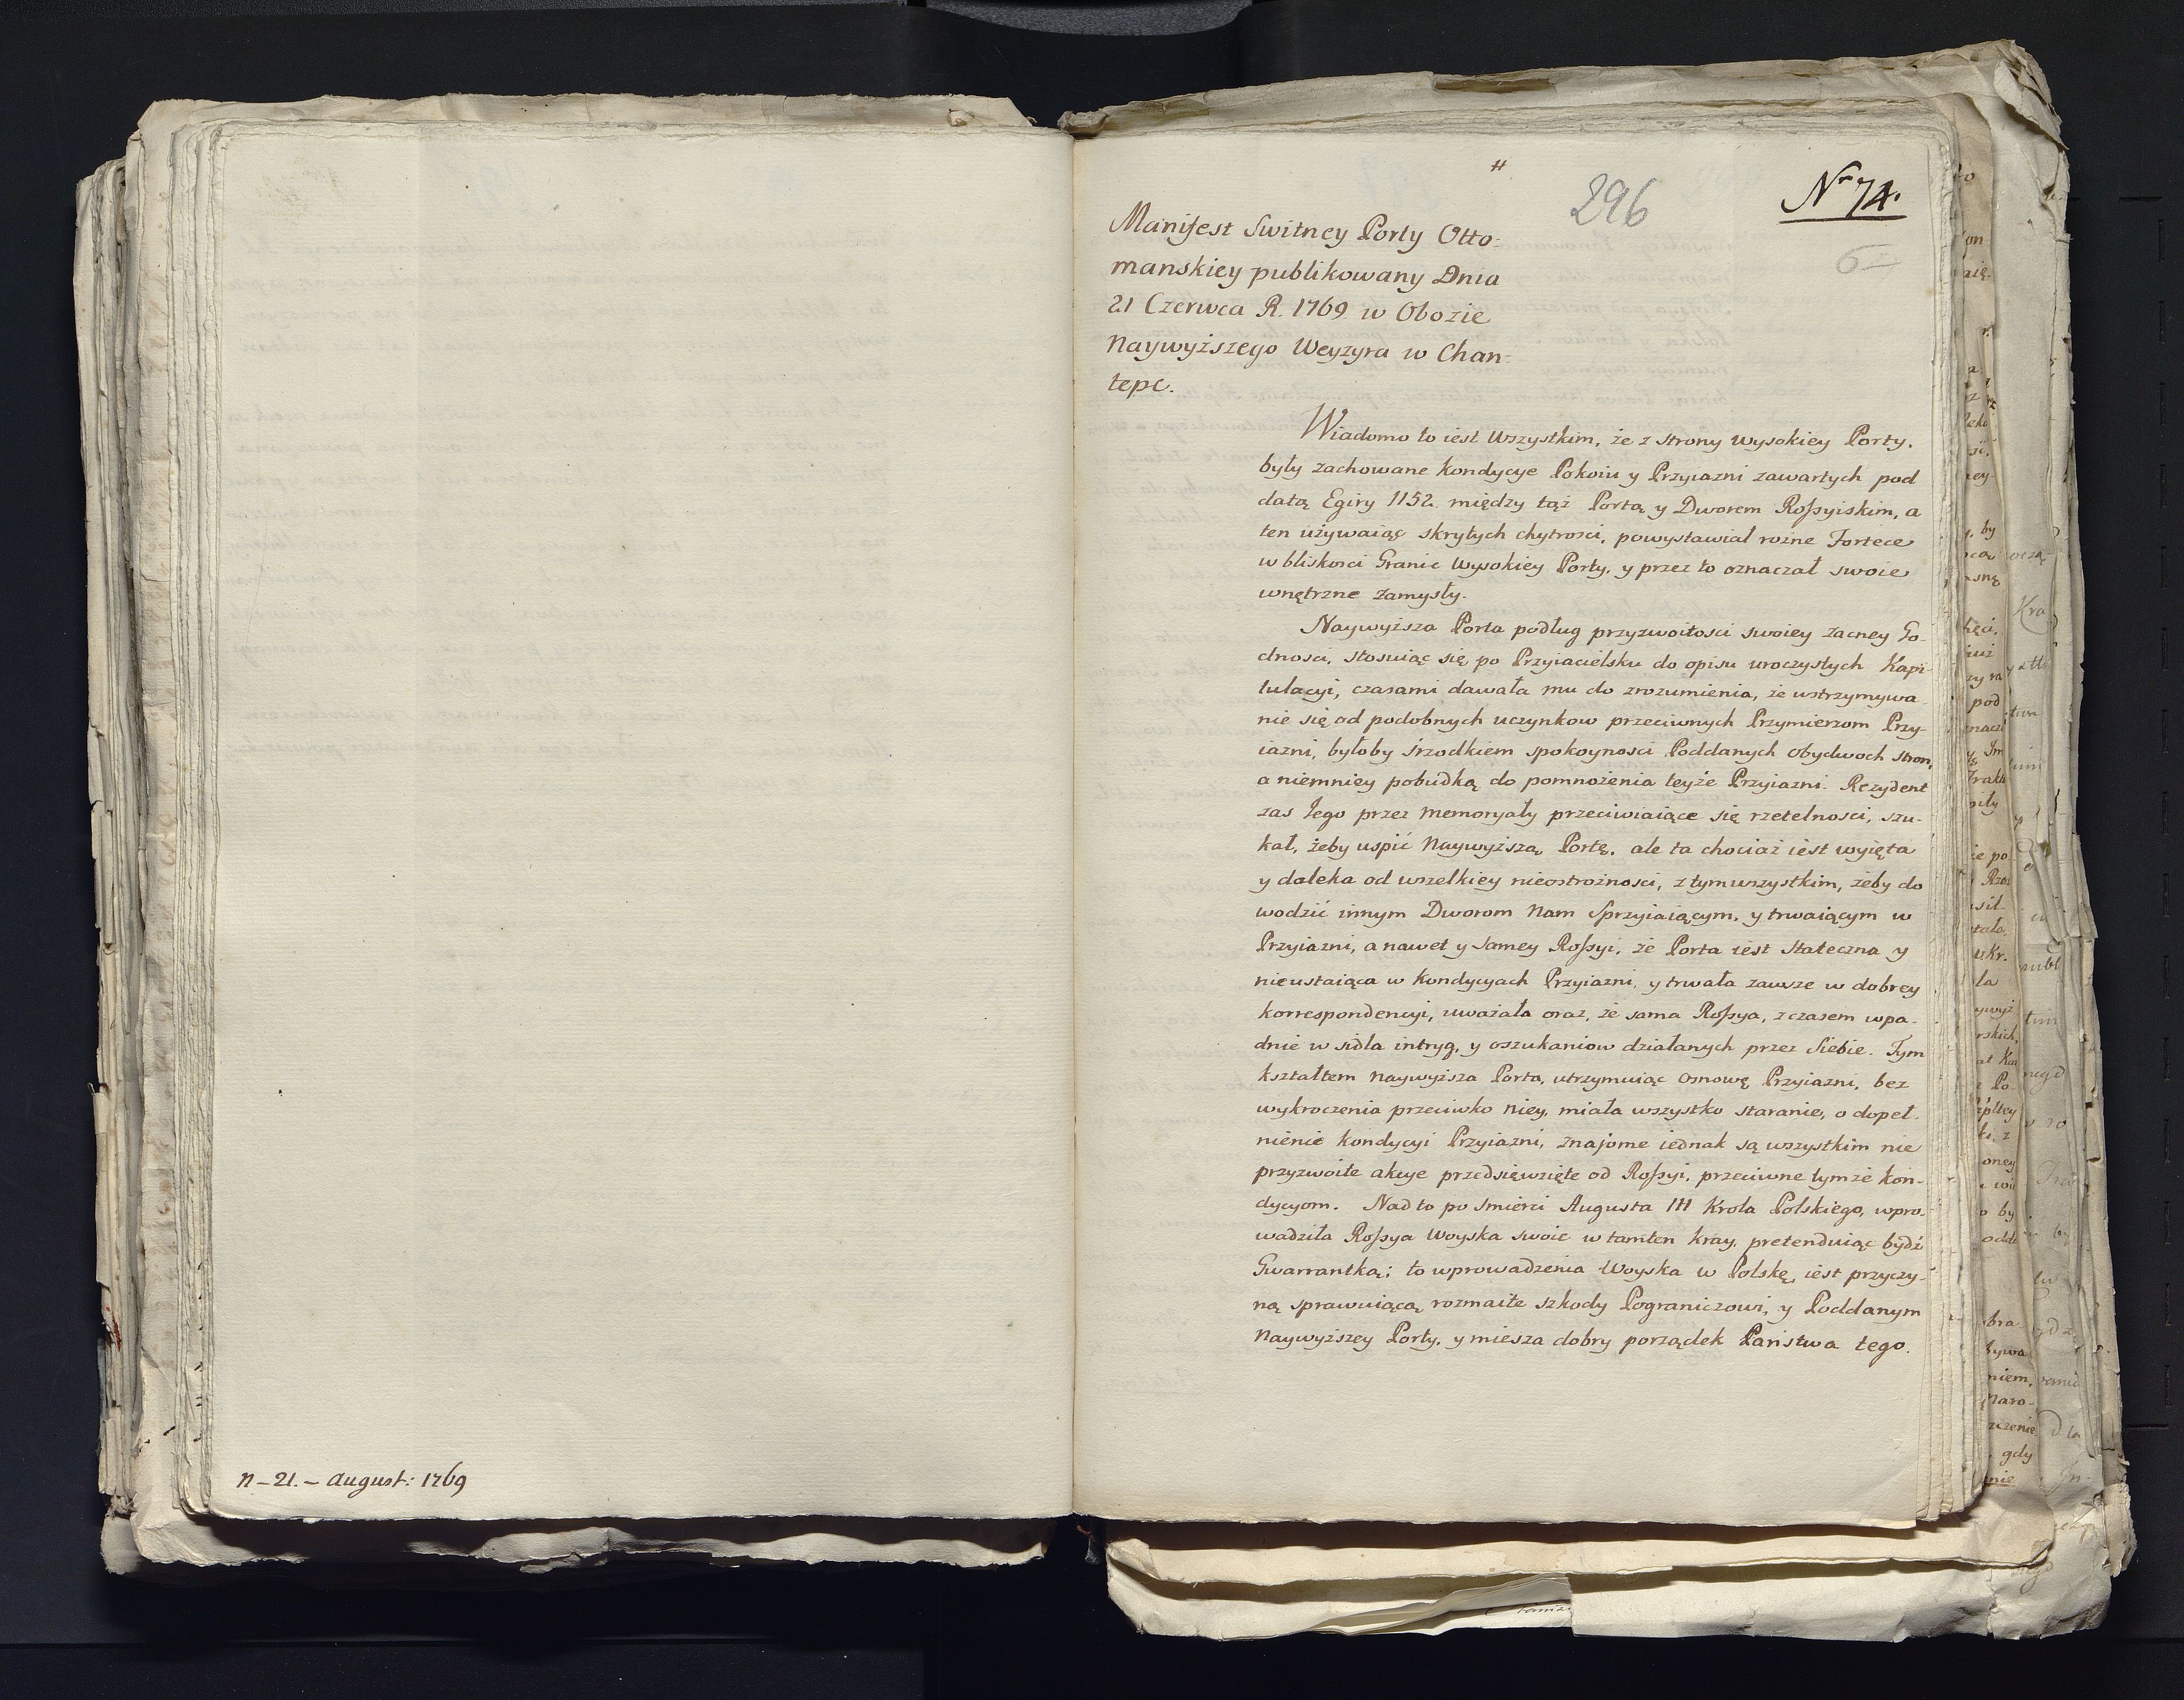 n – 21. – august: 1769
296
Nr 74.
Manifest Switney Porty Otto-
manskiey publikowany Dnia
21 Czerwca R. 1769. w Obozie
Naywyższego Weyzyra w Chan-
tepe.
Wiadomo to iest Wszystkim, że z strony wysokiey Porty,
były zachowane kondycye Pokoiu y Przyiazni zawartych pod
datą Egiry 1152. między tąż Portą y Dworem Rossyiskim, a
ten używaiąc skrytych chytrosci, powystawiał rożne Fortece
w bliskosci Granic Wysokiey Porty, y przez to oznaczał swoie
wnętrzne zamysły.
Naywyższa Porta podług przyzwoitosci swoiey zacney Go-
dnosci, stosuiąc się po Przyiacielsku do opisu uroczystych Kapi-
tulacyi, czasami dawała mu do zrozumienia, że wstrzymywa-
nie się od podobnych uczynkow przeciwnych Przymierzom Przy-
iazni, byłoby śrzodkiem spokoynosci Poddanych obydwoch stron,
a niemniey pobudką do pomnożenia teyże Przyiazni. Rezydent
zas Jego przez memoryały przeciwiaiące się rzetelnosci, szu-
kał, żeby uspić Naywyższą Portę, ale ta chociaż iest wyięta
y daleka od wszelkiey nieostrożnosci, z tym wszystkim, żeby do
wodzić innym Dworom Nam Sprzyiaiącym, y trwaiącym w
Przyiazni, a nawet y samey Rossyi, że Porta iest stateczna y
nieustaiąca w kondycyach Przyiazni, y trwała zawsze w dobrey
korrespondencyi, uważała oraz, że sama Rossya, z czasem wpa-
dnie w sidla intryg, y oszukaniow działanych przez Siebie. Tym
kształtem Naywyższa Porta, utrzymuiąc osnowę Przyiazni, bez
wykroczenia przeciwko Niey, miała wszystko staranie, o dopeł-
nienie kondycyi Przyiazni, znajome iednak są wszystkim nie
przyzwoite akcye przedsięwzięte od Rossyi, przeciwne tymże kon-
dycyom. Nad to po smierci Augusta III Krola Polskiego, wpro-
wadziła Rossya Woyska swoie w tamten kray, pretenduiąc bydź
Gwarrantką; to wprowadzenia Woyska w Polskę, iest przyczy-
ną sprawuiącą rozmaite szkody Pograniczowi, y Poddanym
Naywyższey Porty, y miesza dobry porządek Państwa tego.